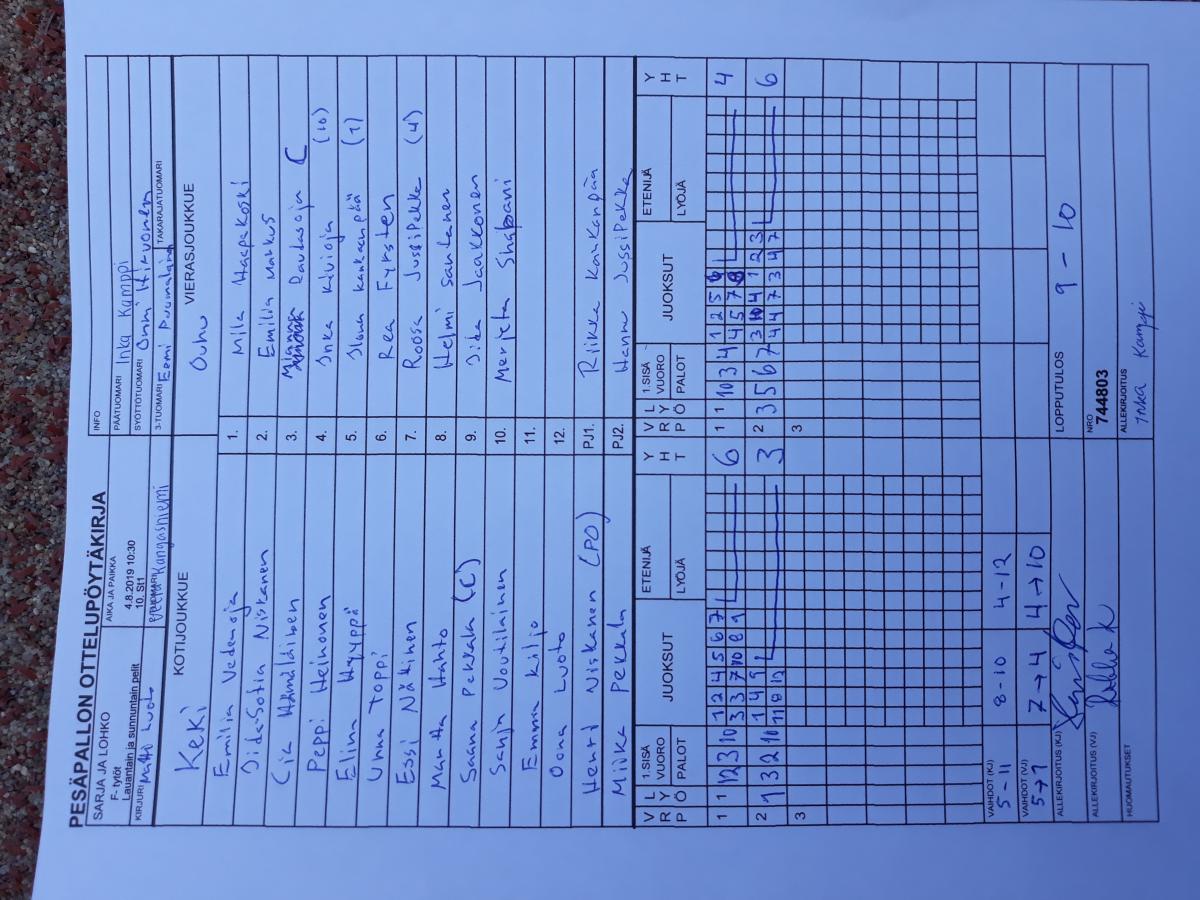 PESÄPALLON OTTELUPÖYTÄKIRJA
SARJA JA LOHKO
F- tytöt
Lauantain ja sunnuntain pelit
AIKA JA PAIKKA
4.8.2019 10:30
10. St1
INFO
PÄÄTUOMARI Inka Kamppi
SYÖTTÖTUOMARI Onni Hirvonen
KIRJURI Matti Luoto
Kangasniemi
3-TUOMARI Eemi Puumalainen
TAKARAJATUOMARI
KOTIJOUKKUE
VIERASJOUKKUE
Keki
Ouhu
Emilia Vedenoja 1. Mila Haapakoski
Iida-Sofia Niskanen 2. Emilia Markus
Cia Hämäläinen 3. Rautasoja C
Peppi Heinonen 4. Inka Kivioja (10)
Elina Hyyppä 5. Ilona Kankaanpää (1)
Unna Toppi 6. Rea Fyrsten
Essi Nätinen 7. Roosa Jussipekka (4)
Mantta Hahto 8. Helmi Santanen
Saana Pekkala (C) 9. Iida Jaakkonen
Sanja Voutilainen 10. Merjeta Shabani
Emma Kiljo 11.
Oona Luoto 12.
Henri Niskanen (PO) PJ1. Riikka Kankaanpää
Miika Pekkala PJ2. Hannu Jussipekka
V R P L Y Ö 1.SISÄ VUORO PALOT JUOKSUT ETENIJÄ LYÖJÄ Y H T V R P L Y Ö 1.SISÄ VUORO PALOT JUOKSUT ETENIJÄ LYÖJÄ Y H T
1 1 12 3 10 1 2 4 5 6 7 6 1 1 10 3 4 1 2 5 4
3 3 7 10 8 9 4 5 7 8
2 7 3 2 10 1 4 9 3 2 3 5 6 7 3 10 4 1 2 3 6
11 8 12 4 4 7 3 4 7
3 3
VAIHDOT (KJ)
5-11 8-10 4-12
VAIHDOT (VJ)
5→1 7→4 4→10
LOPPUTULOS
9 - 10
ALLEKIRJOITUS (KJ)
NRO
744803
ALLEKIRJOITUS (VJ)
ALLEKIRJOITUS
Inka Kamppi
HUOMAUTUKSET